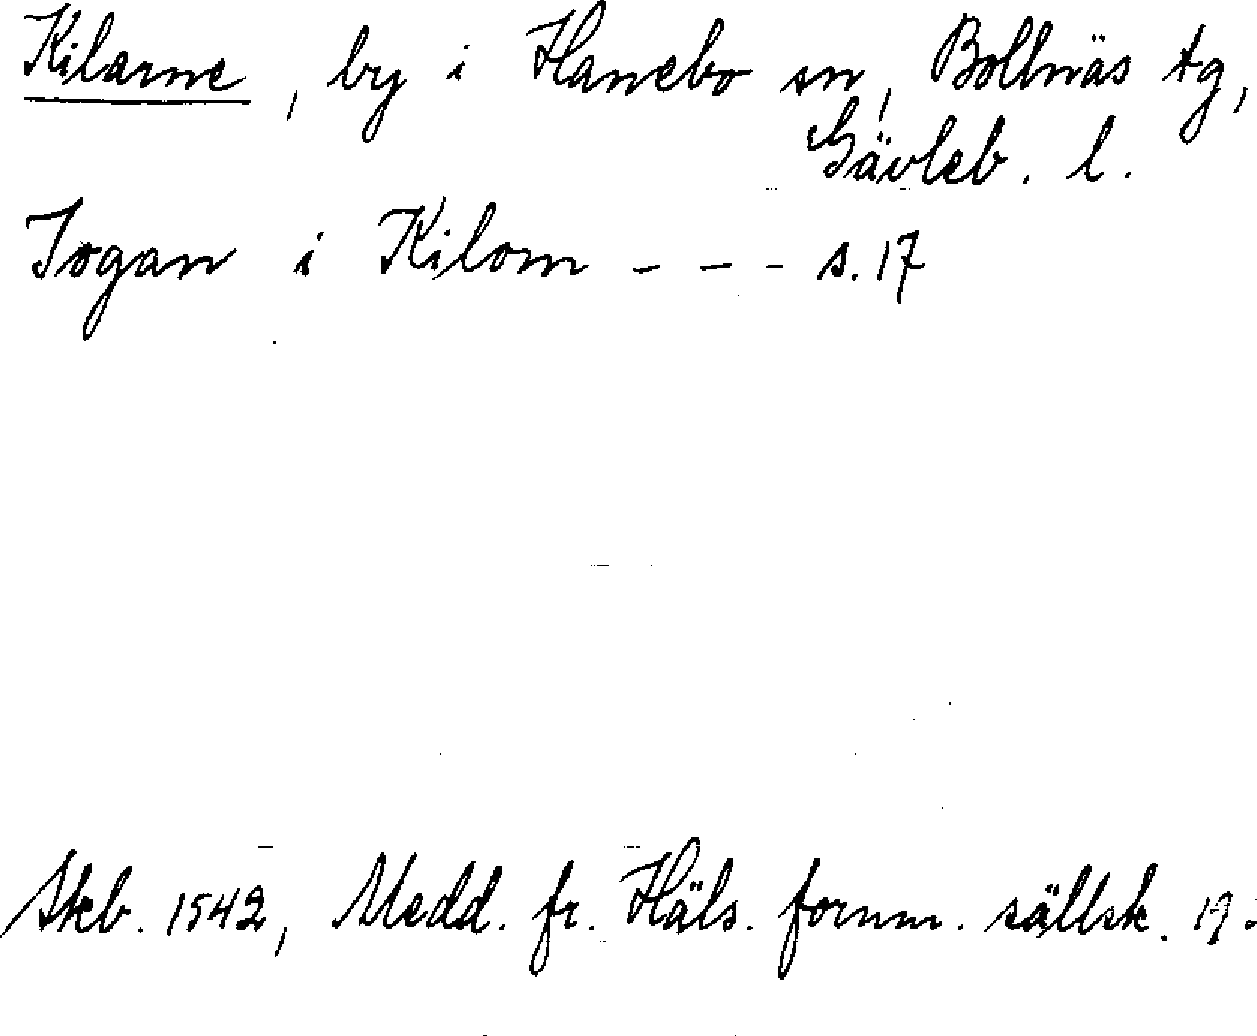 Kilarne, by i Hanebo sn, Bollnäs tg,
Gävleb. l.
Jogan i Kilom - - - s. 17
Skb. 1542, Medd. fr. Häls. fornm. sällsk. 19.